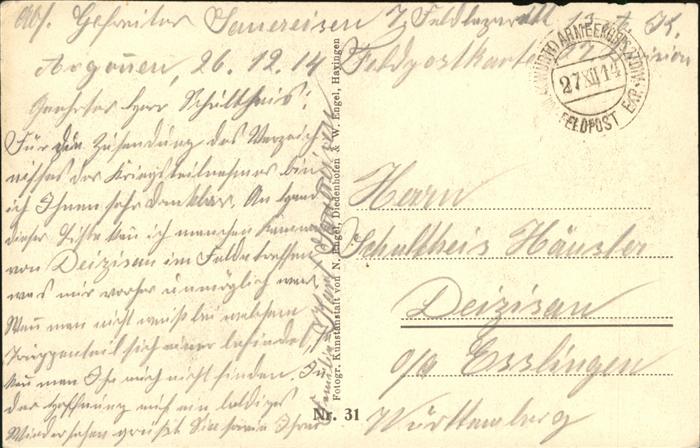 Abs. Gefreiter Sauereisen 7 Feldlazarett 13. A. K.
Feldpostkarte 27 Division
Argonnen, 26.12.14
(WÜRTT) ARMEEKORPS
27 XII 14
FELDPOST EXP.
Geehrter Herr Schultheis!
Für die Zusendung des Verzeich
nisses der Kriegsteilnehmer bin
ich Ihnen sehr dankbar. An Hand
dieser Liste kan ich manchen Kamera
von Deizisau im Felde treffen
was mir vorher unmöglich war.
Wen man nicht weiß bei welchem
Truppenteil sich einer befindet,
kan man Ihn nicht finden. In
der Hoffnung auf ein baldiges
Wiedersehen grüßt Sie sowie Ihre
Fotogr. Kunstanstalt von N. Engel, Diedenhofen & W. Engel, Hayingen
Nr. 31
Herrn
Schultheis Häußler
Deizisau
o/a Esslingen
Württemberg